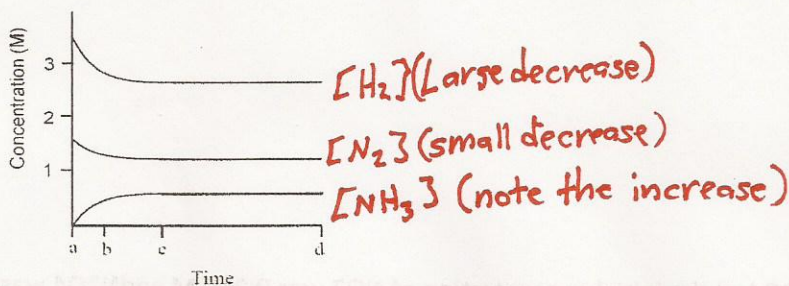 Concentration (M)
3
2
1
[H₂] (Large decrease)
[N₂] (small decrease)
[NH₃] (note the increase)
a b c d
Time